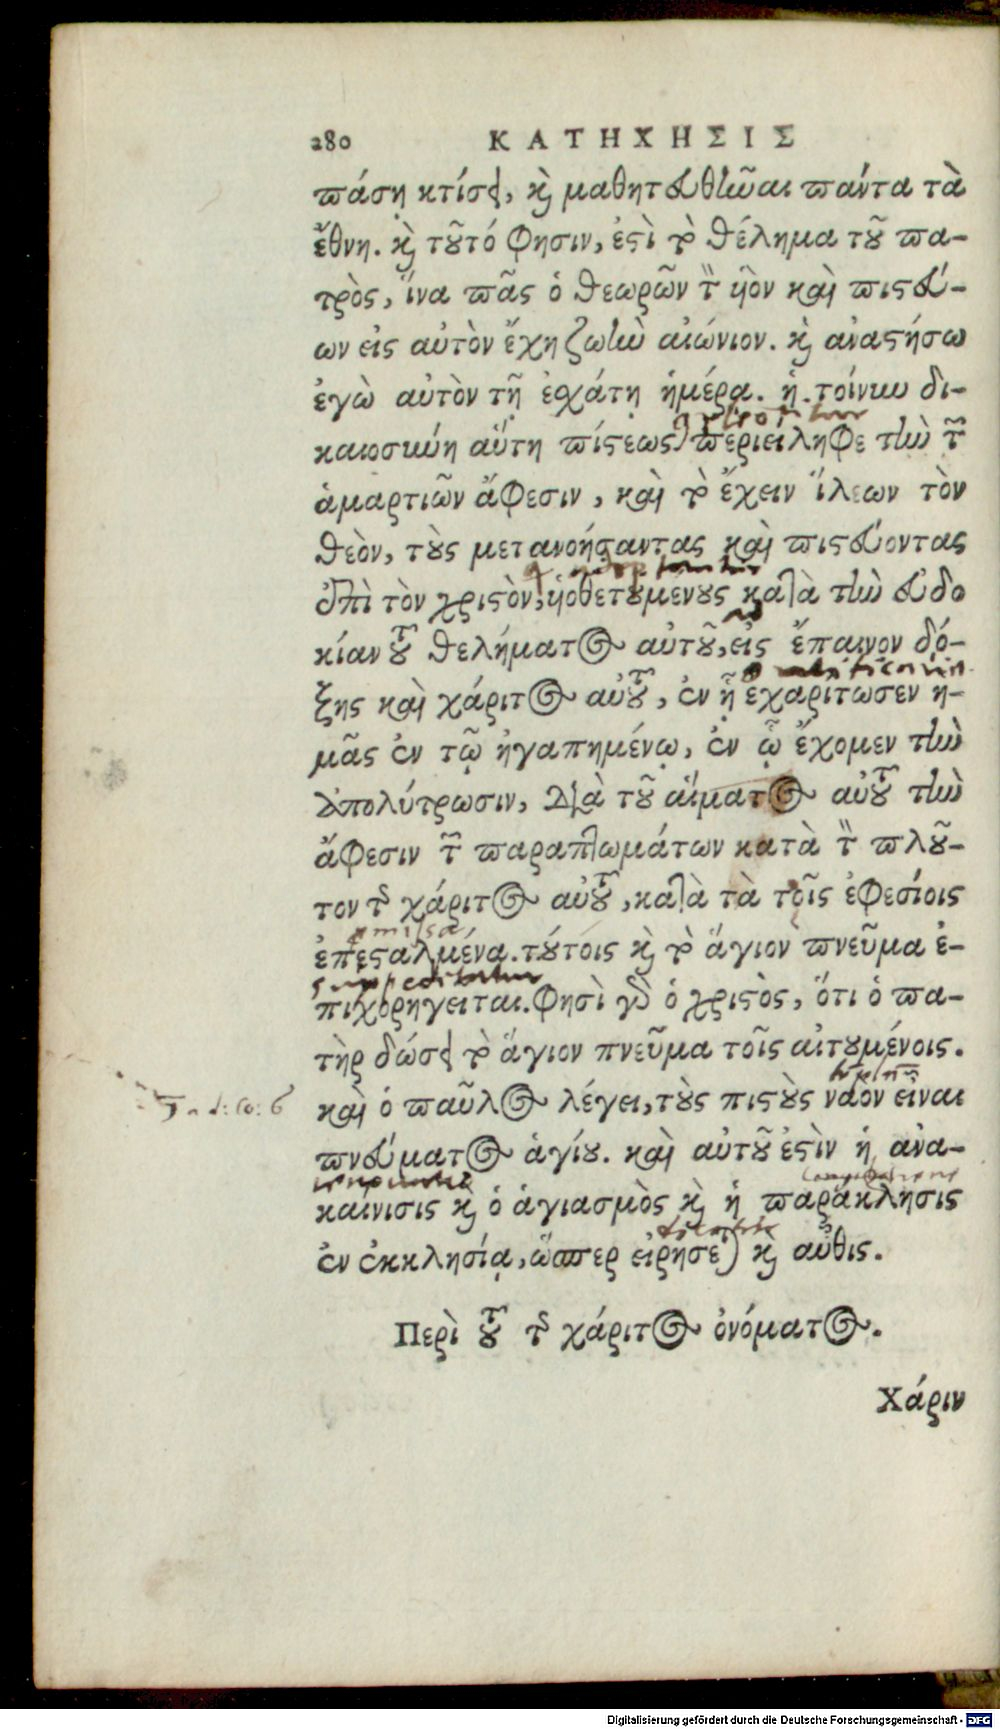 280 ΚΑΤΗΧΗΣΙΣ
πάσῃ κτίσει, καὶ μαθητευθῆναι πάντα τὰ
ἔθνη. καὶ τοῦτό φησιν, ἐστὶ τὸ θέλημα τοῦ πα-
τρὸς, ἵνα πᾶς ὁ θεωρῶν τὸν υἱὸν καὶ πιστεύ-
ων εἰς αὐτὸν ἔχῃ ζωὴν αἰώνιον. καὶ ἀναστήσω
ἐγὼ αὐτὸν τῇ ἐσχάτῃ ἡμέρᾳ. ἡ τοίνυν δι-
καιοσύνη αὕτη πίστεως περιείληφε τὴν τῶν
ἁμαρτιῶν ἄφεσιν, καὶ τὸ ἔχειν ἵλεων τὸν
θεὸν, τοὺς μετανοήσαντας καὶ πιστεύοντας
ἐπὶ τὸν χριστὸν, υἱοθετουμένους κατὰ τὴν εὐδο
κίαν τοῦ θελήματος αὐτοῦ, εἰς ἔπαινον δό-
ξης καὶ χάριτος αὐτοῦ, ἐν ᾗ ἐχαρίτωσεν ἡ-
μᾶς ἐν τῷ ἠγαπημένῳ, ἐν ᾧ ἔχομεν τὴν
ἀπολύτρωσιν, διὰ τοῦ αἵματος αὐτοῦ τὴν
ἄφεσιν τῶν παραπτωμάτων κατὰ τὸν πλοῦ-
τον τῆς χάριτος αὐτοῦ, κατὰ τὰ τοῖς ἐφεσίοις
ἐπεσταλμένα. τούτοις καὶ τὸ ἅγιον πνεῦμα ἐ-
suppeditatur
πιχορηγεῖται. φησὶ γὰρ ὁ χριστὸς, ὅτι ὁ πα-
τὴρ δώσει τὸ ἅγιον πνεῦμα τοῖς αἰτουμένοις.
καὶ ὁ παῦλος λέγει, τοὺς πιστοὺς ναὸν εἶναι
πνεύματος ἁγίου. καὶ αὐτοῦ ἐστὶν ἡ ἀνα-
καίνισις καὶ ὁ ἁγιασμὸς καὶ ἡ παράκλησις
ἐν ἐκκλησίᾳ, ὥσπερ εἰρήσεται καὶ αὖθις.
Περὶ τοῦ τῆς χάριτος ὀνόματος.
Χάριν
Digitalisierung gefördert durch die Deutsche Forschungsgemeinschaft - DFG